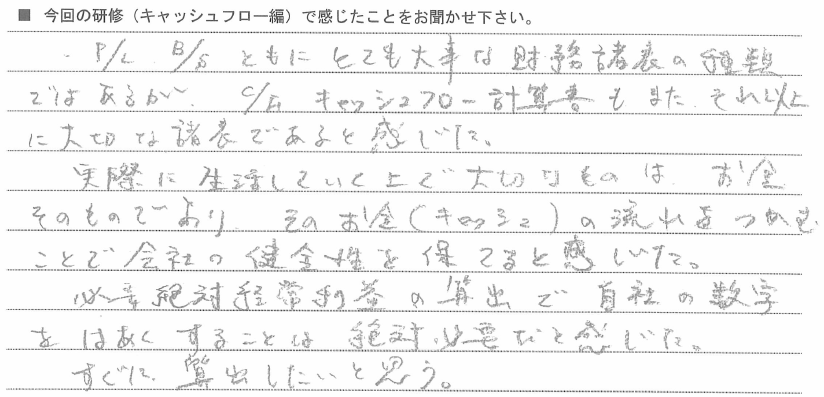 ■ 今回の研修（キャッシュフロー編）で感じたことをお聞かせ下さい。
・P/L B/S ともにとても大事な財務諸表の種類
ではあるが、C/F キャッシュフロー計算書もまた、それ以上
に大切な諸表であると感じた。
実際に生活していく上で大切なものは、お金
そのものであり、そのお金（キャッシュ）の流れをつかむ
ことで会社の健全性を保てると感じた。
必要絶対経常利益の算出で自社の数字
をはあくすることは絶対必要だと感じた。
すぐに算出したいと思う。